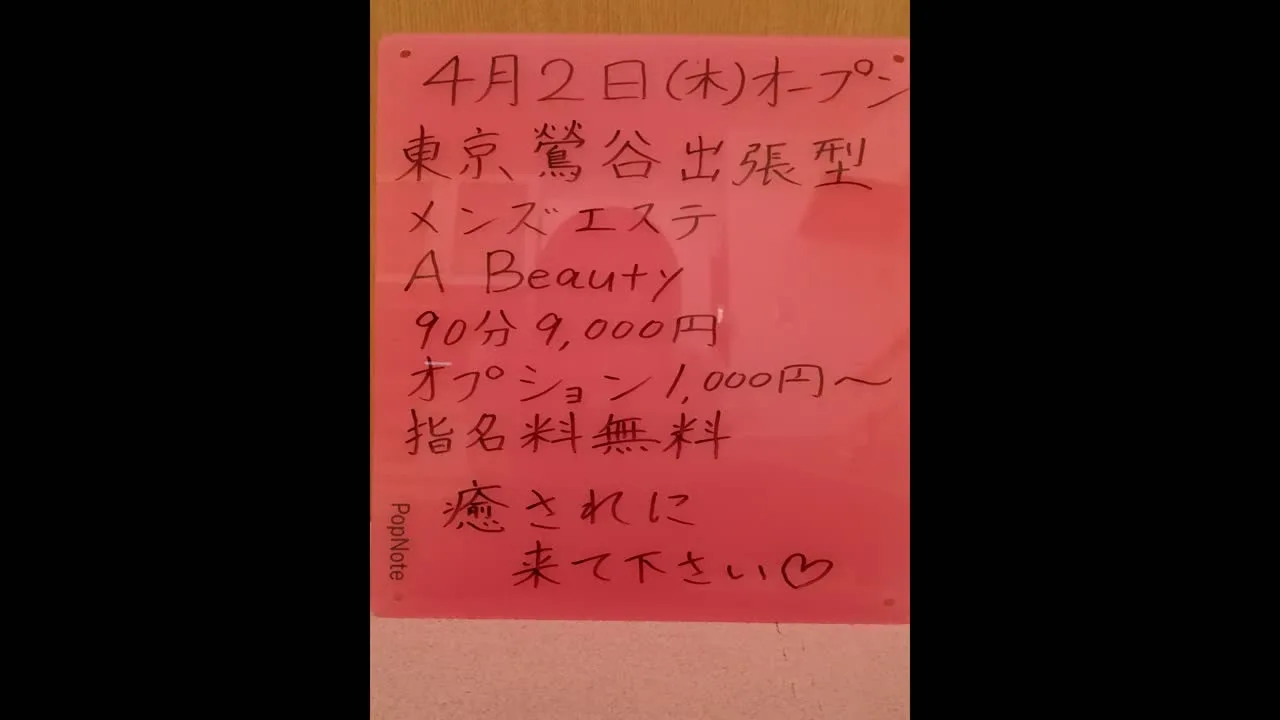 4月2日(木)オープン
東京、鶯谷出張型
メンズエステ
A Beauty
90分9,000円
オプション1,000円〜
指名料無料
癒されに
来て下さい♡
PopNote